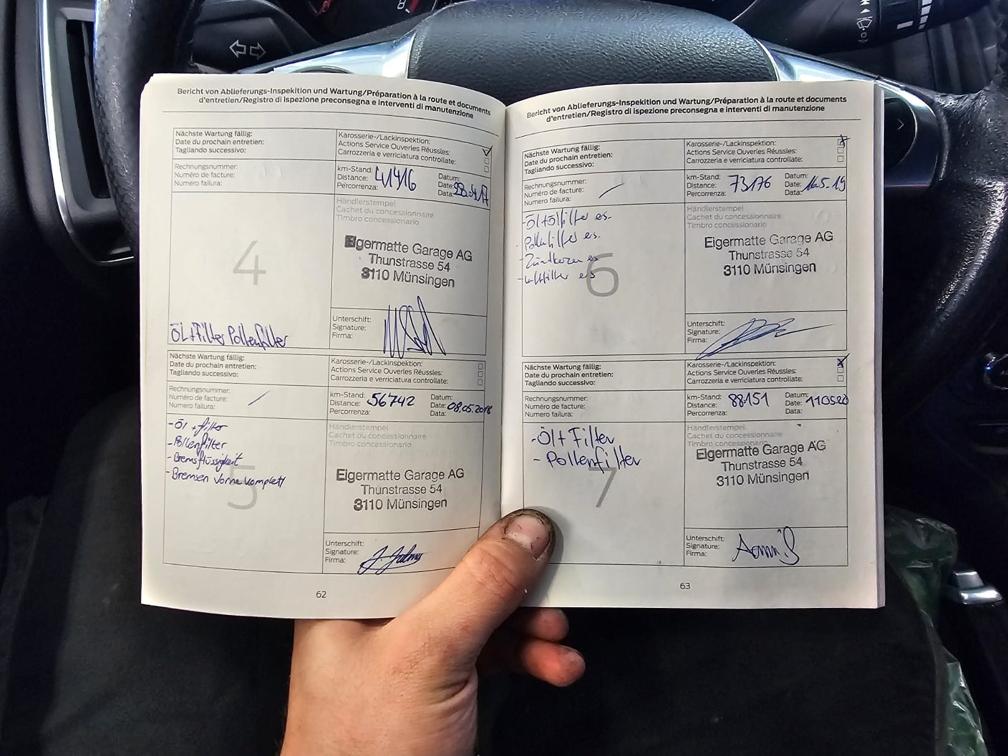 Bericht von Ablieferungs-Inspektion und Wartung/Préparation à la route et documents
d'entretien/Registro di ispezione preconsegna e interventi di manutenzione
Nächste Wartung fällig:
Date du prochain entretien:
Tagliando successivo:
Karosserie-/Lackinspektion:
Actions Service Ouvertes Réussies:
Carrozzeria e verniciatura controllate:
Rechnungsnummer:
Numéro de facture:
Numero fattura:
km-Stand:
Distance: 41416
Percorrenza:
Datum:
Date:
Data:
4
Händlerstempel
Cachet du concessionnaire
Timbro concessionario
Eigermatte Garage AG
Thunstrasse 54
3110 Münsingen
Öl+Filter Pollenfilter
Unterschift:
Signature:
Firma:
Nächste Wartung fällig:
Date du prochain entretien:
Tagliando successivo:
Karosserie-/Lackinspektion:
Actions Service Ouvertes Réussies:
Carrozzeria e verniciatura controllate:
Rechnungsnummer:
Numéro de facture:
Numero fattura:
km-Stand:
Distance: 56742
Percorrenza:
Datum:
Date: 08.05.2018
Data:
- Öl + filter
- Pollenfilter
- Bremsflüssigkeit
- Bremsen vorne komplett
5
Händlerstempel
Cachet du concessionnaire
Timbro concessionario
Eigermatte Garage AG
Thunstrasse 54
3110 Münsingen
Unterschift:
Signature:
Firma:
62
Bericht von Ablieferungs-Inspektion und Wartung/Préparation à la route et documents
d'entretien/Registro di ispezione preconsegna e interventi di manutenzione
Nächste Wartung fällig:
Date du prochain entretien:
Tagliando successivo:
Karosserie-/Lackinspektion:
Actions Service Ouvertes Réussies:
Carrozzeria e verniciatura controllate:
Rechnungsnummer:
Numéro de facture:
Numero fattura:
km-Stand:
Distance: 73176
Percorrenza:
Datum:
Date: 16.5.19
Data:
- Öl+Ölfilter es.
- Pollenfilter es.
- Zündkerzen es
- Luftfilter es
6
Händlerstempel
Cachet du concessionnaire
Timbro concessionario
Eigermatte Garage AG
Thunstrasse 54
3110 Münsingen
Unterschift:
Signature:
Firma:
Nächste Wartung fällig:
Date du prochain entretien:
Tagliando successivo:
Karosserie-/Lackinspektion:
Actions Service Ouvertes Réussies:
Carrozzeria e verniciatura controllate:
Rechnungsnummer:
Numéro de facture:
Numero fattura:
km-Stand:
Distance: 88151
Percorrenza:
Datum:
Date: 110520
Data:
- Öl+ Filter
- Pollenfilter
7
Händlerstempel
Cachet du concessionnaire
Timbro concessionario
Eigermatte Garage AG
Thunstrasse 54
3110 Münsingen
Unterschift:
Signature:
Firma:
63